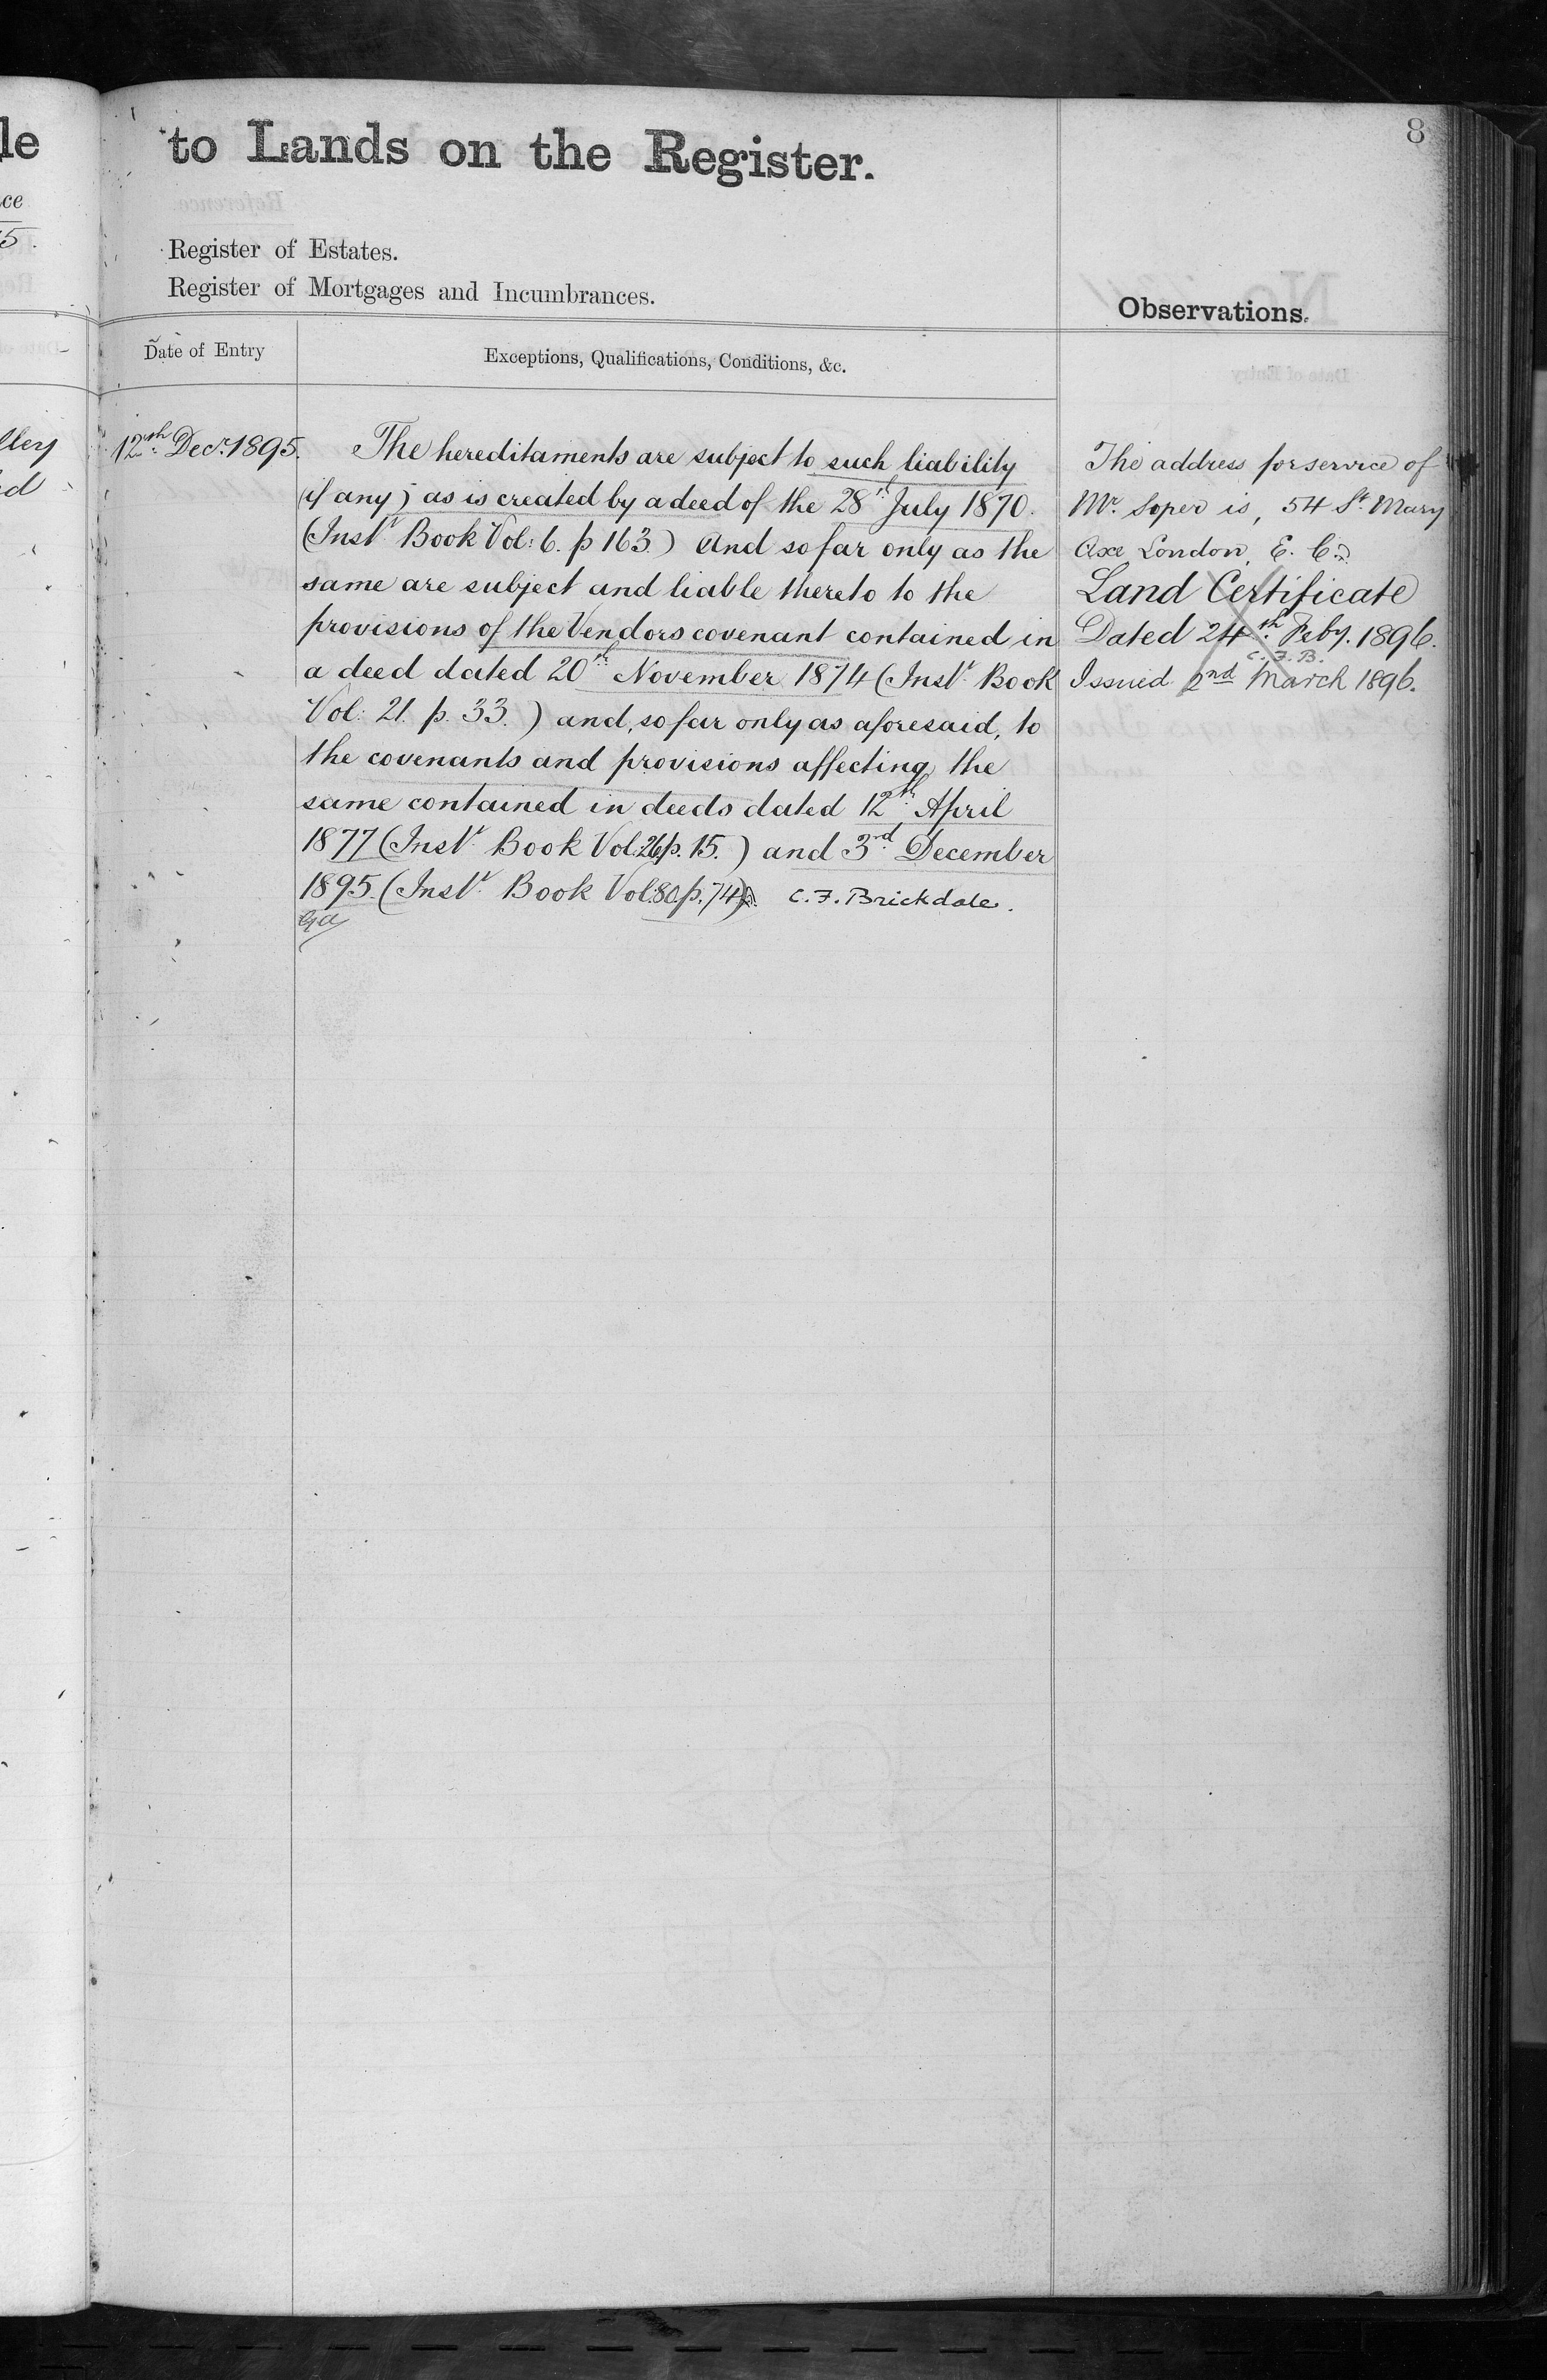 le
ce
5.
llery
ed
to Lands on the Register.
8
Register of Estates.
Register of Mortgages and Incumbrances.
Observations.
Date of Entry
Exceptions, Qualifications, Conditions, &c.
12th Decr. 1895.
The hereditaments are subject to such liability
(if any) as is created by a deed of the 28th July 1870.
(Inst. Book Vol: 6. p 163.) And so far only as the
same are subject and liable thereto to the
provisions of the Vendors covenant contained in
a deed dated 20th November 1874 (Inst. Book
Vol: 21. p. 33.) and, so far only as aforesaid, to
the covenants and provisions affecting the
same contained in deeds dated 12th April
1877 (Inst. Book Vol: 26 p. 15.) and 3rd December
1895. (Inst. Book Vol: 80 p. 74). C. F. Brickdale.
The address for service of
Mr. Soper is, 54 St. Mary
Axe London, E. C.
Land Certificate
Dated 24th Feby. 1896.
C. F. B.
Issued 2nd March 1896.